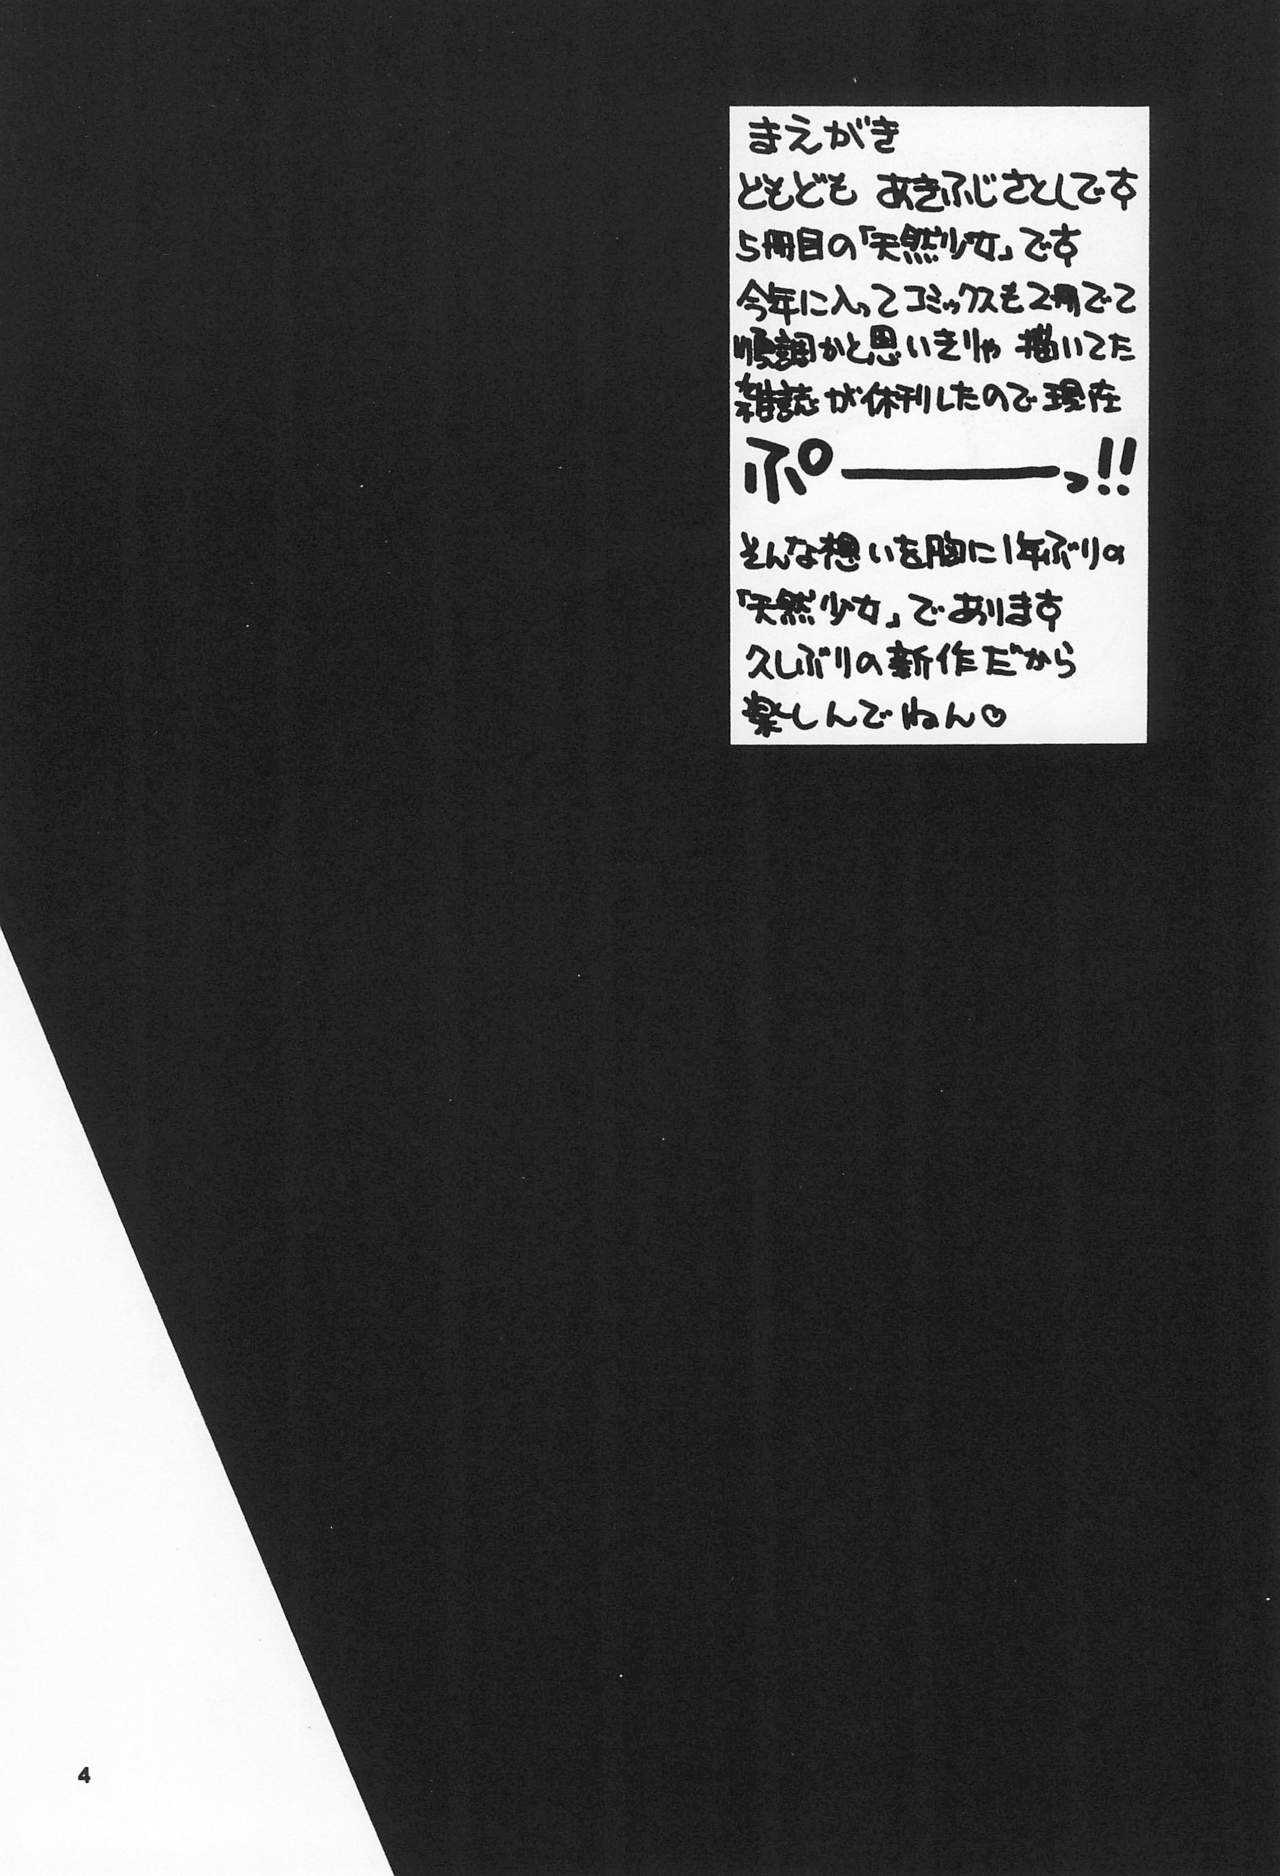 まえがき
どもども あきふじさとしです
5冊目の「天然少女」です
今年に入ってコミックスも2冊でて
順調かと思いきりゃ 描いてた
雑誌が休刊したので現在
ぷーーっ!!
そんな想いを胸に1年ぶりの
「天然少女」であります
久しぶりの新作だから
楽しんでねん♡
4